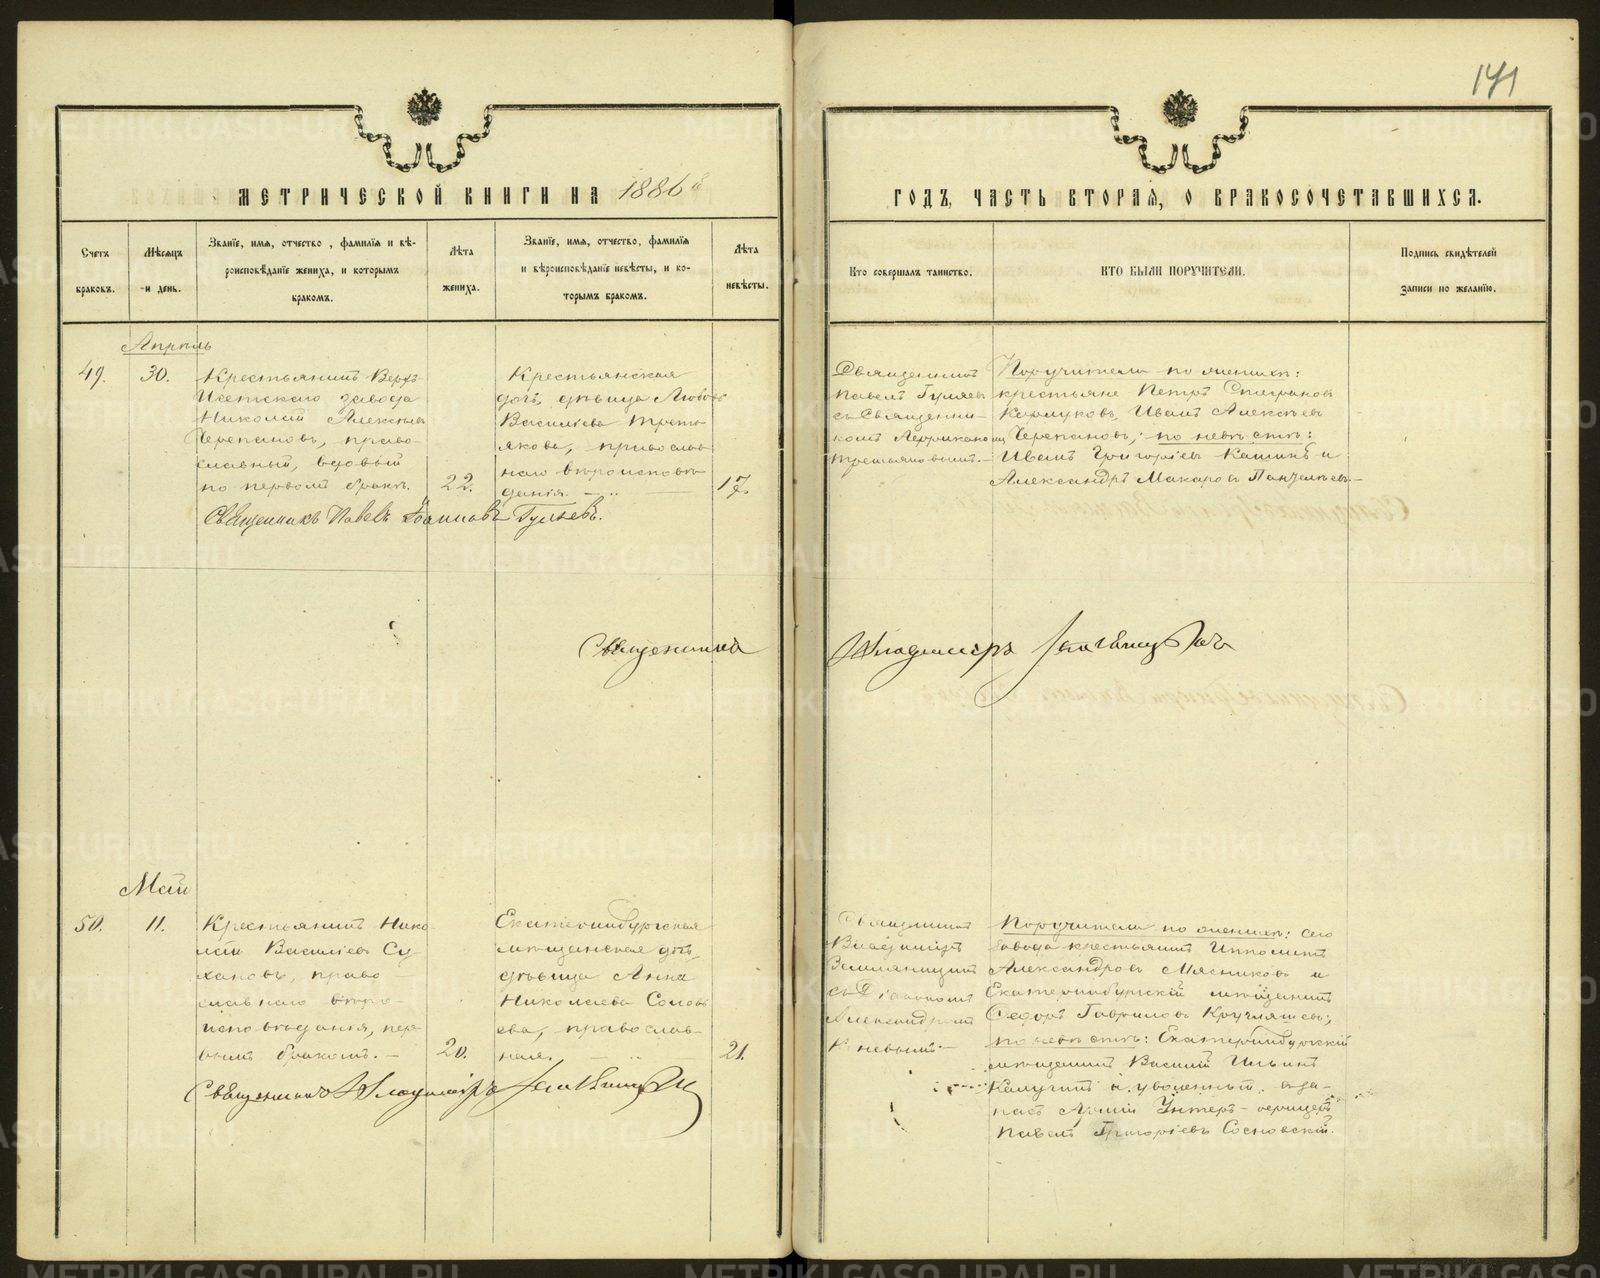 171
МЕТРИЧЕСКОЙ КНИГИ НА 1886й
ГОДЪ, ЧАСТЬ ВТОРАЯ, О БРАКОСОЧЕТАВШИХСЯ.
Счетъ
браковъ.
Мѣсяцъ
и день.
Званіе, имя, отчество, фамилія и вѣ-
роисповѣданіе жениха, и которымъ
бракомъ.
Лѣта
жениха.
Званіе, имя, отчество, фамилія
и вѣроисповѣданіе невѣсты, и ко-
торымъ бракомъ.
Лѣта
невѣсты.
Кто совершалъ таинство.
КТО БЫЛИ ПОРУЧИТЕЛИ.
Подпись свидѣтелей
записи по желанію.
Апрѣль
49.
30.
Крестьянинъ Верхъ
Исетскаго завода
Николай Алексѣевъ
Черепановъ, право-
славный,
по первому бракѣ.
22.
Крестьянская
дочь, дѣвица Любовь
Васильева Треть-
якова, православ-
наго вѣроисповѣ-
данія.
17.
Священникъ
Павелъ Гуляевъ
съ Священни-
комъ
Третьяковымъ.
Поручители по женихѣ:
крестьяне Петръ
Кормуковъ, Иванъ Алексѣевъ
Черепановъ; по невѣстѣ:
Иванъ Григорьевъ Кашинъ и
Александръ Макаровъ Пантелѣевъ.
Священникъ Павелъ Іоанновъ Гуляевъ.
Священникъ
Владимиръ Земляницынъ
Май
50.
11.
Крестьянинъ Нико-
лай Васильевъ Су-
хановъ, право-
славнаго вѣро-
исповѣданія, пер-
вымъ бракомъ.
20.
Екатеринбургская
мѣщанская дочь,
дѣвица Анна
Николаева Соловь-
ева, православ-
ная.
21.
Священникъ
Владимиръ
Земляницынъ
съ Діакономъ
Александромъ
Поручители по женихѣ: сего
завода крестьянинъ Ипполитъ
Александровъ Мясниковъ и
Екатеринбургскій мѣщанинъ
Ѳедоръ Гавриловъ Кругляшевъ;
по невѣстѣ: Екатеринбургскій
мѣщанинъ Василій Ильинъ
Калугинъ и уволенный въ за-
пасъ Арміи Унтеръ-офицеръ
Павелъ Григорьевъ Сосновскій.
Священникъ Владимиръ Земляницынъ
METRIKI.GASO-URAL.RU